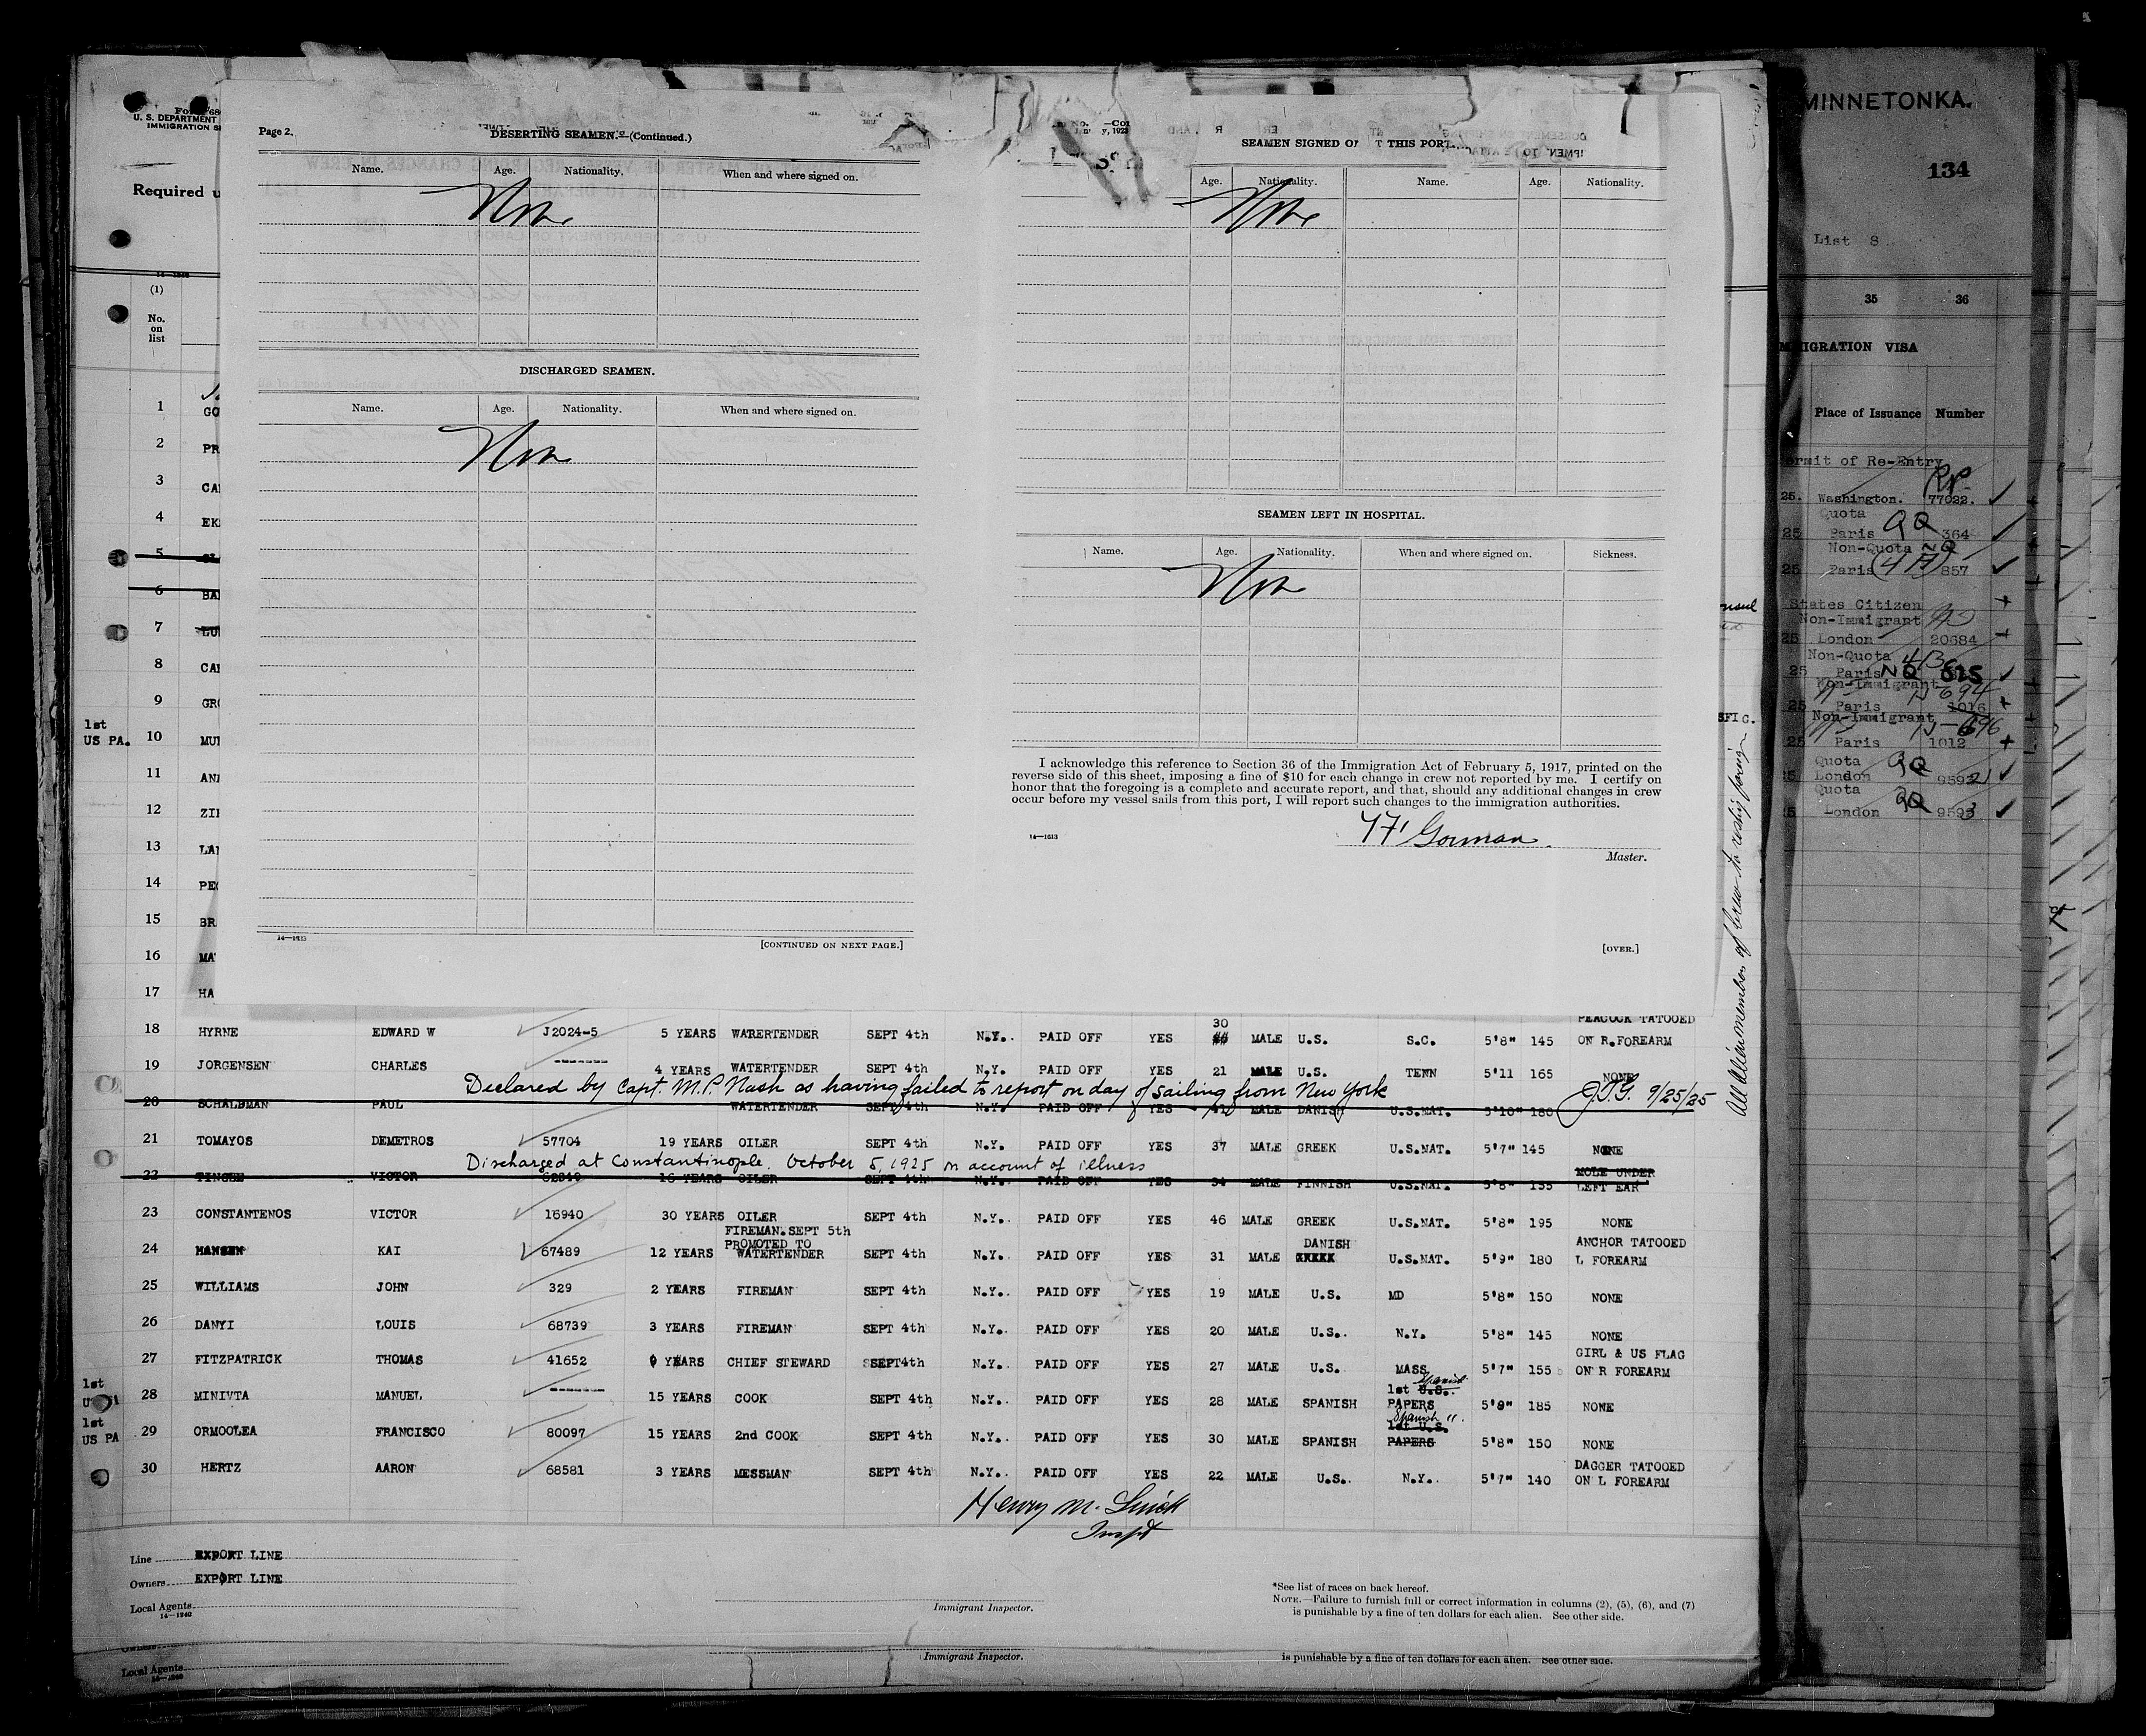 Page 2.
DESERTING SEAMEN.—(Continued.)
Name. Age. Nationality. When and where signed on.
None
DISCHARGED SEAMEN.
Name. Age. Nationality. When and where signed on.
None
14—1613
[CONTINUED ON NEXT PAGE.]
SEAMEN SIGNED ON AT THIS PORT
Age. Nationality. Name. Age. Nationality.
None
SEAMEN LEFT IN HOSPITAL.
Name. Age. Nationality. When and where signed on. Sickness.
None
I acknowledge this reference to Section 36 of the Immigration Act of February 5, 1917, printed on the
reverse side of this sheet, imposing a fine of $10 for each change in crew not reported by me. I certify on
honor that the foregoing is a complete and accurate report, and that, should any additional changes in crew
occur before my vessel sails from this port, I will report such changes to the immigration authorities.
14—1613
Gorman
Master.
[OVER.]
U. S. DEPARTMENT
IMMIGRATION SE
Required u
(1)
No.
on
list
1 GO
2 PR
3 CA
4 EK
5
6 BA
7
8 CA
9 GR
1st
US PA. 10 MU
11 AN
12 ZI
13 LA
14 PE
15 BR
16 MA
17 HA
PEACOCK TATOOED
18 HYRNE EDWARD W J2024-5 5 YEARS WATERTENDER SEPT 4th N.Y. PAID OFF YES 30 MALE U.S. S.C. 5'8" 145 ON R.FOREARM
19 JORGENSEN CHARLES ------ 4 YEARS WATERTENDER SEPT 4th N.Y. PAID OFF YES 21 MALE U.S. TENN 5'11 165 NONE
Declared by Capt. M.P. Nash as having failed to report on day of sailing from New York J.T.G. 9/25/25
20 SCHALBMAN PAUL WATERTENDER SEPT 4th N.Y. PAID OFF YES 41 MALE DANISH U.S.NAT. 5'10" 180
21 TOMAYOS DEMETROS 57704 19 YEARS OILER SEPT 4th N.Y. PAID OFF YES 37 MALE GREEK U.S.NAT. 5'7" 145 NONE
Discharged at Constantinople. October 5, 1925 on account of illness
MOLE UNDER
22 VICTOR 16 YEARS OILER SEPT 4th N.Y. PAID OFF YES 34 MALE FINNISH U.S.NAT. 5'8" 155 LEFT EAR
23 CONSTANTENOS VICTOR 16940 30 YEARS OILER SEPT 4th N.Y. PAID OFF YES 46 MALE GREEK U.S.NAT. 5'8" 195 NONE
FIREMAN.SEPT 5th
PROMOTED TO DANISH ANCHOR TATOOED
24 HANSEN KAI 67489 12 YEARS WATERTENDER SEPT 4th N.Y. PAID OFF YES 31 MALE U.S.NAT. 5'9" 180 L FOREARM
25 WILLIAMS JOHN 329 2 YEARS FIREMAN SEPT 4th N.Y. PAID OFF YES 19 MALE U.S. MD 5'8" 150 NONE
26 DANYI LOUIS 68739 3 YEARS FIREMAN SEPT 4th N.Y. PAID OFF YES 20 MALE U.S. N.Y. 5'8" 145 NONE
GIRL & US FLAG
27 FITZPATRICK THOMAS 41652 9 YEARS CHIEF STEWARD SEPT4th N.Y. PAID OFF YES 27 MALE U.S. MASS 5'7" 155 ON R FOREARM
1st Spanish
1st U.S.
28 MINIVTA MANUEL ------ 15 YEARS COOK SEPT 4th N.Y. PAID OFF YES 28 MALE SPANISH PAPERS 5'9" 185 NONE
1st Spanish "
1st U.S.
US PA 29 ORMOOLEA FRANCISCO 80097 15 YEARS 2nd COOK SEPT 4th N.Y. PAID OFF YES 30 MALE SPANISH PAPERS 5'8" 150 NONE
DAGGER TATOOED
30 HERTZ AARON 68581 3 YEARS MESSMAN SEPT 4th N.Y. PAID OFF YES 22 MALE U.S. N.Y. 5'7" 140 ON L FOREARM
Henry M.
Inspt
Line EXPORT LINE
Owners EXPORT LINE
Local Agents
14—1240
Immigrant Inspector.
*See list of races on back hereof.
NOTE.—Failure to furnish full or correct information in columns (2), (5), (6), and (7)
is punishable by a fine of ten dollars for each alien. See other side.
Owners
Local Agents
14—1240
Immigrant Inspector.
is punishable by a fine of ten dollars for each alien. See other side.
All Alien members of crew to reship foreign
MINNETONKA.
134
List 8
35 36
IMMIGRATION VISA
Place of Issuance Number
Permit of Re-Entry
RP
25. Washington. 77022.
Quota QQ
25 Paris 364
Non-Quota
25 Paris 857
States Citizen
Non-Immigrant
25 London 20684
Non-Quota
25 Paris NQ 625
Non-Immigrant 694
25 Paris 1016
Non-Immigrant 696
25 Paris 1012
Quota QQ
25 London 9592
Quota QQ
25 London 9593